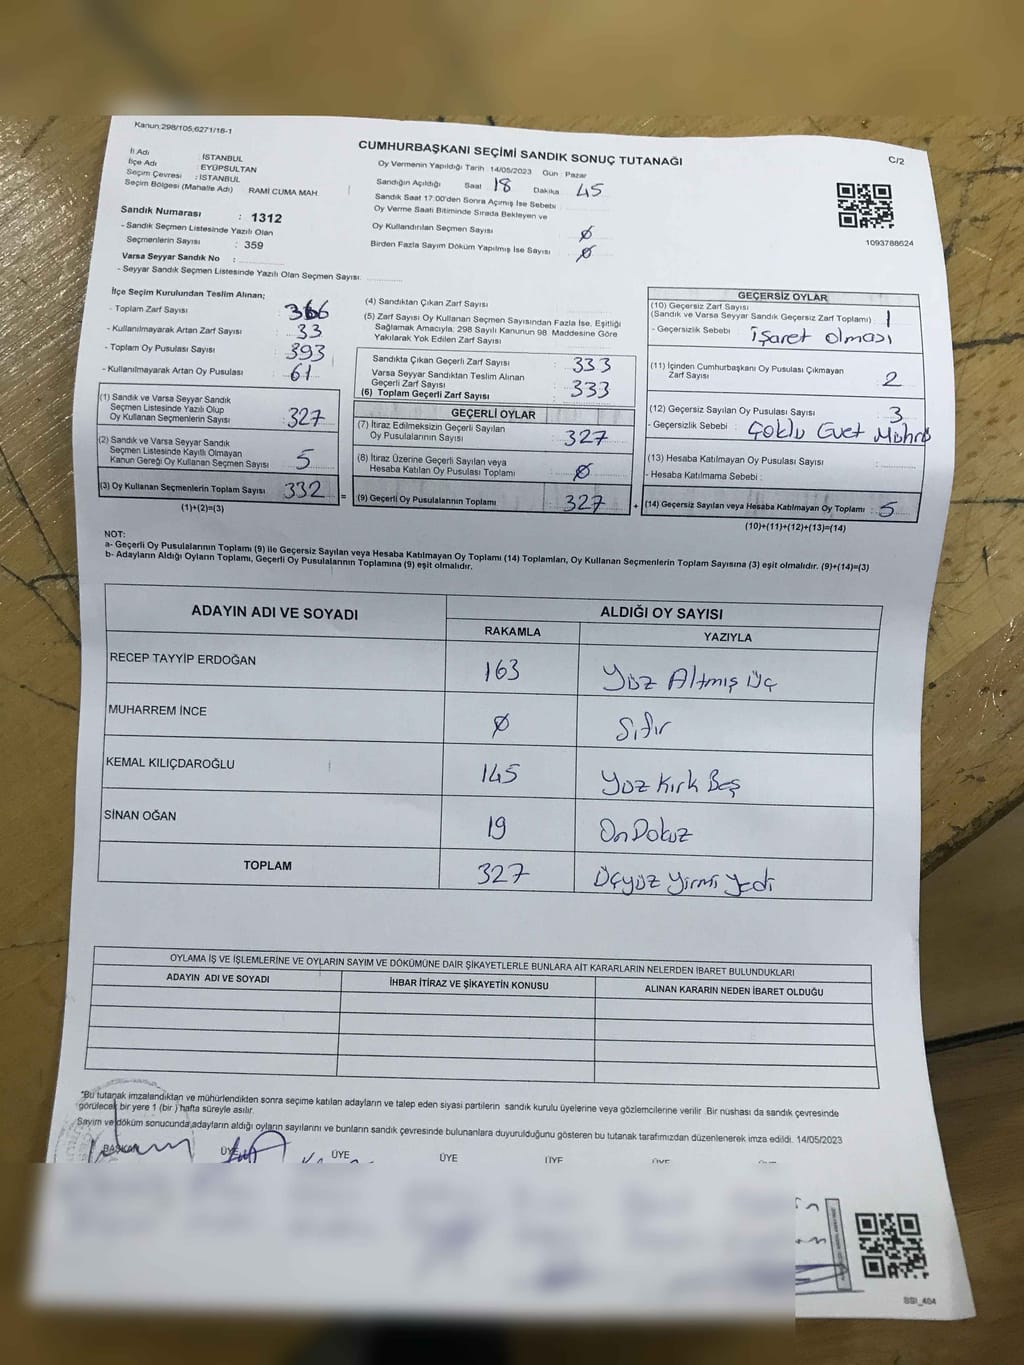 Kanun:298/105,6271/16-1
CUMHURBAŞKANI SEÇİMİ SANDIK SONUÇ TUTANAĞI
C/2
İl Adı : İSTANBUL
İlçe Adı EYÜPSULTAN
Seçim Çevresi : İSTANBUL
Seçim Bölgesi (Mahalle Adı) RAMİ CUMA MAH.
Sandık Numarası : 1312
- Sandık Seçmen Listesinde Yazılı Olan
Seçmenlerin Sayısı : 359
Varsa Seyyar Sandık No :
- Seyyar Sandık Seçmen Listesinde Yazılı Olan Seçmen Sayısı:
Oy Vermenin Yapıldığı Tarih 14/05/2023 Gün : Pazar
Sandığın Açıldığı Saat 18 Dakika 45
Sandık Saat 17:00'den Sonra Açmış İse Sebebi
Oy Verme Saati Bitiminde Sırada Bekleyen ve
Oy Kullandırılan Seçmen Sayısı Ø
Birden Fazla Sayım Döküm Yapılmış İse Sayısı Ø
1093788624
İlçe Seçim Kurulundan Teslim Alınan;
- Toplam Zarf Sayısı : 366
- Kullanılmayarak Artan Zarf Sayısı : 33
- Toplam Oy Pusulası Sayısı : 393
- Kullanılmayarak Artan Oy Pusulası : 61
(1) Sandık ve Varsa Seyyar Sandık
Seçmen Listesinde Yazılı Olup
Oy Kullanan Seçmenlerin Sayısı : 327
(2) Sandık ve Varsa Seyyar Sandık
Seçmen Listesinde Kayıtlı Olmayan
Kanun Gereği Oy Kullanan Seçmen Sayısı 5
(3) Oy Kullanan Seçmenlerin Toplam Sayısı 332 =
(1)+(2)=(3)
(4) Sandıktan Çıkan Zarf Sayısı :
(5) Zarf Sayısı Oy Kullanan Seçmen Sayısından Fazla İse, Eşitliği
Sağlamak Amacıyla; 298 Sayılı Kanunun 98. Maddesine Göre
Yakılarak Yok Edilen Zarf Sayısı
Sandıkta Çıkan Geçerli Zarf Sayısı : 333
Varsa Seyyar Sandıktan Teslim Alınan
Geçerli Zarf Sayısı : 333
(6) Toplam Geçerli Zarf Sayısı
GEÇERLİ OYLAR
(7) İtiraz Edilmeksizin Geçerli Sayılan
Oy Pusulalarının Sayısı : 327
(8) İtiraz Üzerine Geçerli Sayılan veya
Hesaba Katılan Oy Pusulası Toplamı Ø
(9) Geçerli Oy Pusulalarının Toplamı : 327 +
GEÇERSİZ OYLAR
(10) Geçersiz Zarf Sayısı
(Sandık ve Varsa Seyyar Sandık Geçersiz Zarf Toplamı) : 1
- Geçersizlik Sebebi : işaret olması
(11) İçinden Cumhurbaşkanı Oy Pusulası Çıkmayan
Zarf Sayısı 2
(12) Geçersiz Sayılan Oy Pusulası Sayısı : 3
- Geçersizlik Sebebi : Çoklu Evet Mührü
(13) Hesaba Katılmayan Oy Pusulası Sayısı :
- Hesaba Katılmama Sebebi :
(14) Geçersiz Sayılan veya Hesaba Katılmayan Oy Toplamı : 5
(10)+(11)+(12)+(13)=(14)
NOT:
a- Geçerli Oy Pusulalarının Toplamı (9) ile Geçersiz Sayılan veya Hesaba Katılmayan Oy Toplamı (14) Toplamları, Oy Kullanan Seçmenlerin Toplam Sayısına (3) eşit olmalıdır. (9)+(14)=(3)
b- Adayların Aldığı Oyların Toplamı, Geçerli Oy Pusulalarının Toplamına (9) eşit olmalıdır.
ADAYIN ADI VE SOYADI ALDIĞI OY SAYISI
RAKAMLA YAZIYLA
RECEP TAYYİP ERDOĞAN 163 Yüz Altmış Üç
MUHARREM İNCE Ø Sıfır
KEMAL KILIÇDAROĞLU 145 Yüz Kırk Beş
SİNAN OĞAN 19 On Dokuz
TOPLAM 327 Üçyüz Yirmi Yedi
OYLAMA İŞ VE İŞLEMLERİNE VE OYLARIN SAYIM VE DÖKÜMÜNE DAİR ŞİKAYETLERLE BUNLARA AİT KARARLARIN NELERDEN İBARET BULUNDUKLARI
ADAYIN ADI VE SOYADI İHBAR İTİRAZ VE ŞİKAYETİN KONUSU ALINAN KARARIN NEDEN İBARET OLDUĞU
*Bu tutanak imzalandıktan ve mühürlendikten sonra seçime katılan adayların ve talep eden siyasi partilerin sandık kurulu üyelerine veya gözlemcilerine verilir. Bir nüshası da sandık çevresinde
görülecek bir yere 1 (bir) hafta süreyle asılır.
Sayım ve döküm sonucunda adayların aldığı oyların sayılarını ve bunların sandık çevresinde bulunanlara duyurulduğunu gösteren bu tutanak tarafımızdan düzenlenerek imza edildi. 14/05/2023
BAŞKAN ÜYE ÜYE ÜYE ÜYE ÜYE
SSI_404